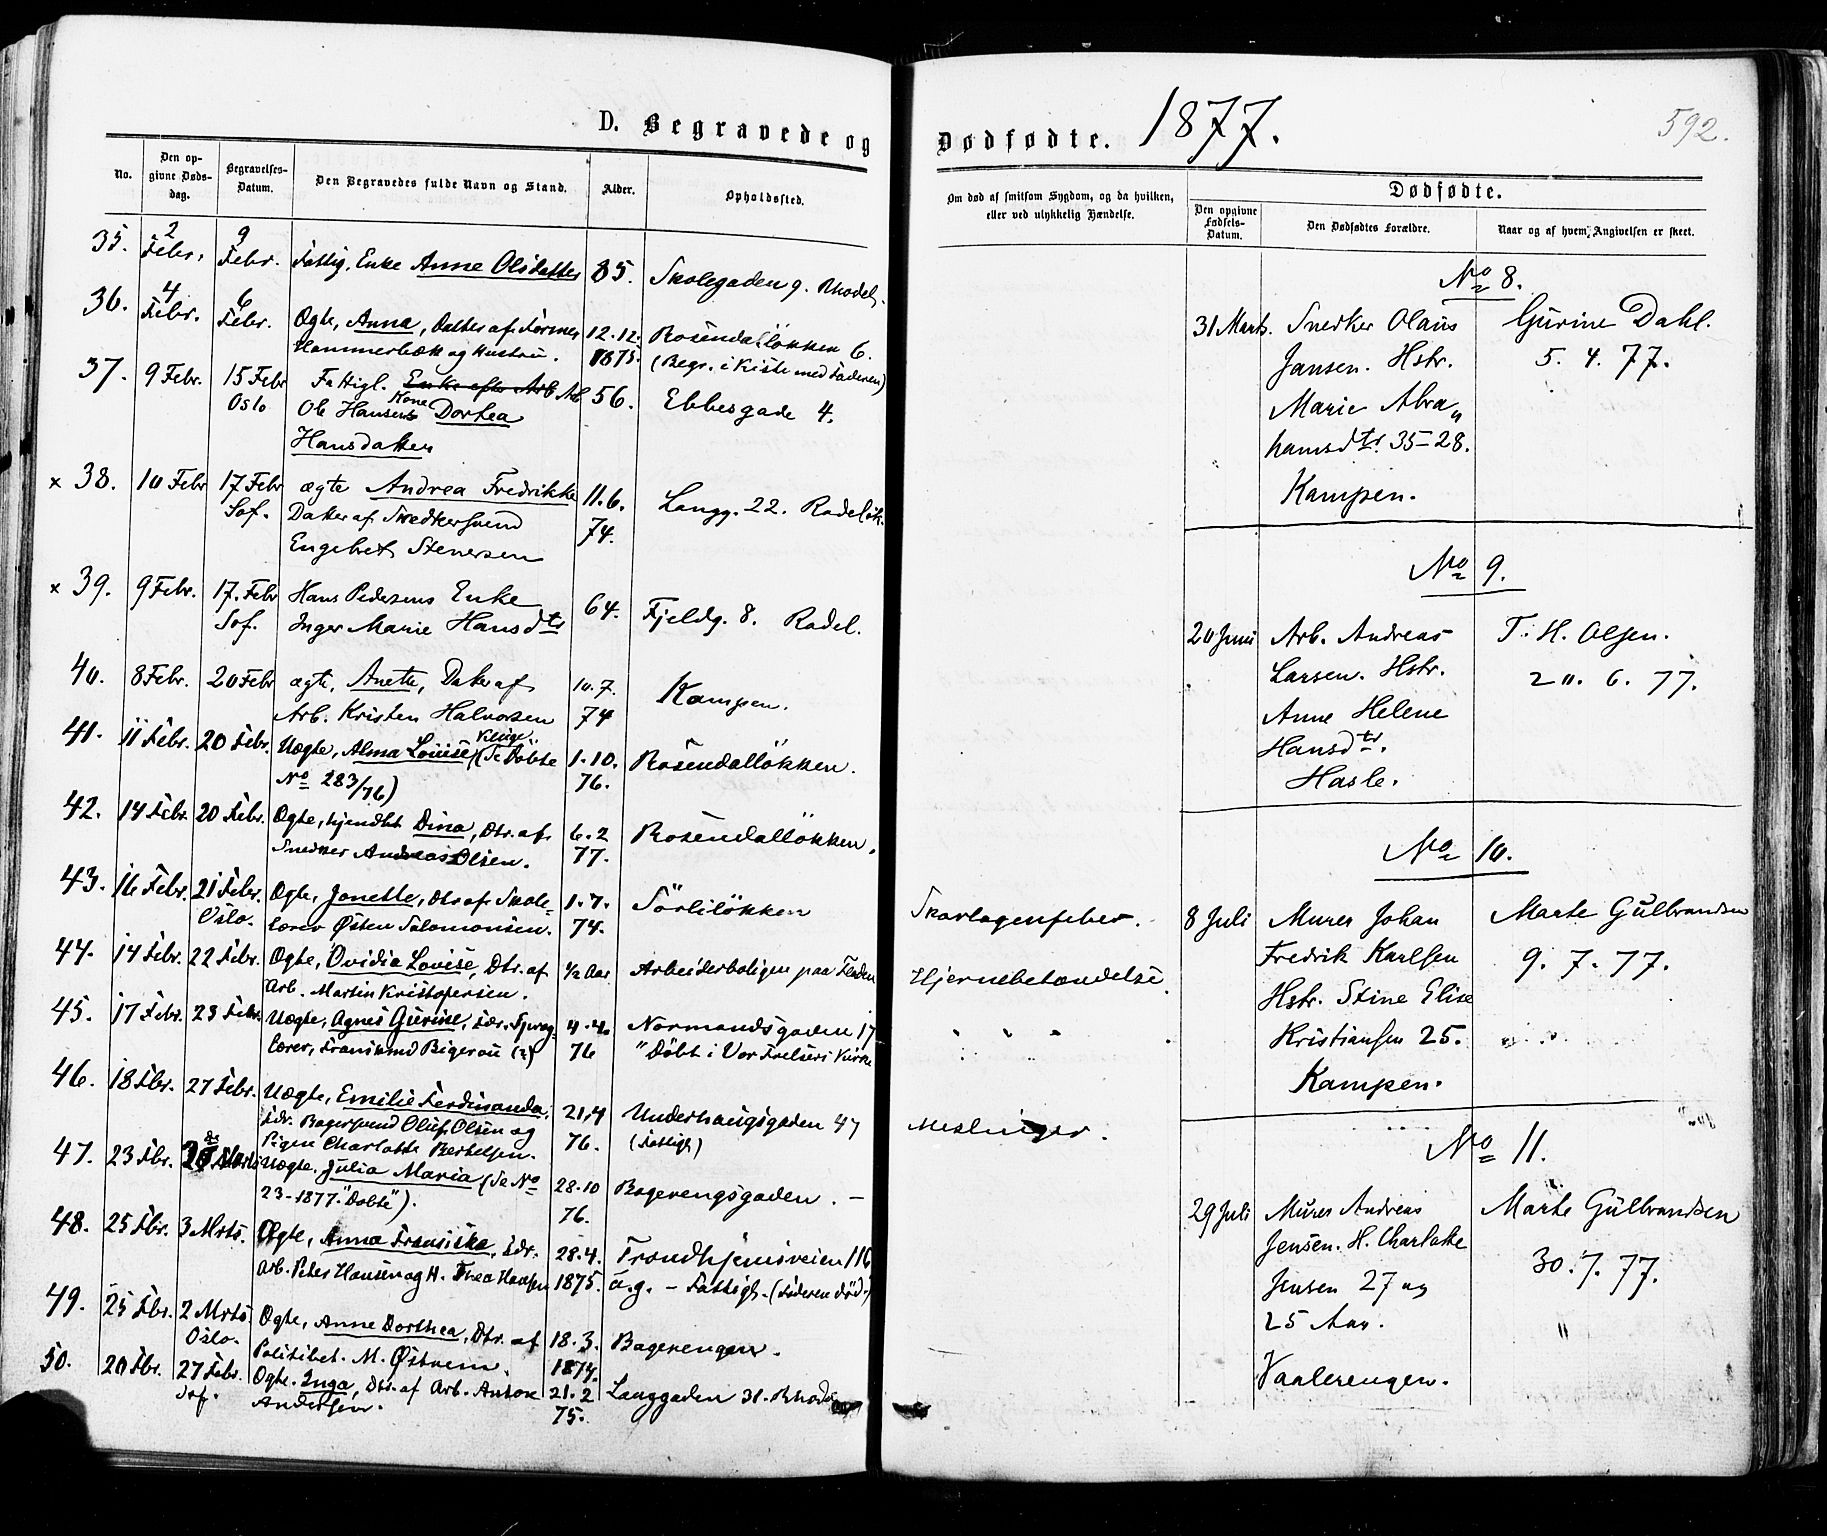 D. Begravede og Dødfødte. 1877.
592.
No.
Den op-
givne Døds-
dag.
Begravelses-
Datum.
Den Begravedes fulde Navn og Stand.
Alder.
Opholdssted.
Om død af smitsom Sygdom, og da hvilken,
eller ved ulykkelig Hændelse.
Dødfødte.
Den opgivne
Fødsels-
Datum.
Den Dødfødtes Forældre.
Naar og af hvem Angivelsen er skeet.
35. 2 Febr. 9 Febr. Fattig, Enke Anne Olsdatter 85. Skolegaden 9.
36. 4 Febr. 6 Febr. Ægte, Anna, Datter af Former 12.12. Rosendalløkken 6.
Hammerbæk og Hustru. 1875. (Begr. i Kiste med Faderen)
37. 9 Febr. 15 Febr Fattigl. Enke efter Arb. Arb 56. Ebbesgade 4.
Oslo Ole Hansens Kone Dorthea
Hansdatter
x 38. 10 Febr 17 Febr ægte Andrea Fredrikke 11.6. Langg. 22. Rodeløk.
Sof. Datter af Snedkersvend 74.
Engebret Stenersen
x 39. 9 Febr. 17. Febr Hans Pedersens Enke 64. Fjeldg. 8. Rodel.
Sof. Inger Marie Hansdtr
40. 8 Febr. 20 Febr ægte, Anette, Datter af 10.7. Kampen.
Arb. Kristen Halvorsen 74
41. 11 Febr. 20 Febr. Uægte, Alma Louise (Se Døbte 1.10. Rosendalløkken.
No 283/76) 76.
42. 14 Febr. 20 Febr. Ægte, hjemdbt Dina, Dtr. af 6.2 Rosendalløkken.
Snedker Andreas Olsen. 77.
43. 16 Febr. 21 Febr. Ægte, Jonette, Dtr af Skole- 1.7. Sörliløkken Skarlagensfeber.
Oslo. lærer Østen Salomonsen. 74.
44. 14 Febr. 22 Febr. Ægte, Ovidia Lovise, Dtr. af ½ Aar Arbeiderboligen paa Hjernebetændelse.
Arb. Martin Kristofersen.
45. 17 Febr. 23 Febr. Uægte, Agnes Gurine, Normandsgaden 17
lærer, 76 "Døbt i Vor Frelsers Kirke
46. 18 Fbr. 27 Febr. Uægte, Emilie Ferdinanda, 21.4 Underhaugsgaden 47 Meslinger.
Fdr. Bagersvend Oluf Olsen og 76. (Fattigl)
Pigen Charlotte Bertelsen.
47. 23 Fbr. Uægte. Julia Maria (Se No 28.10 Bagerengsgaden. –
23-1877. "Døbte"). 76.
48. 25 Fbr. 3 Mrts. Ægte, Anna Fransiska, Fdr. 28.4. Trondhjemsveien 116
Arb. Peter Hansen og H. Thea Hansen 1875. a.g. – Fattigl. (Faderen død.)
49. 25 Fbr. 2 Mrts. Ægte, Anne Dorthea, Dtr. af 18.3. Bagerengen.
Oslo. Politibet. M. Østrem. 1874.
50. 20 Fbr. 27 Febr. Ægte. Inga, Dtr. af Arb. Anton 21.2 Langgaden 31.
Sof. Andersen. 75.
No 8.
31 Marts. Snedker Olaus Gurine Dahl.
Jansen. Hstr. 5.4.77.
Marie Abra„
hamsdtr. 35-28.
Kampen.
No 9.
20 Juni Arb. Andreas T. H. Olsen.
Larsen. Hstr. 20.6.77.
Anne Helene
Hansdtr.
Hasle.
No 10.
8 Juli Murer Johan Marte Gulbrandsen
Fredrik Karlsen 9.7.77.
Hstr. Stine Elise
Kristiansen 25.
Kampen.
No 11.
29 Juli Murer Andreas Marte Gulbrandsen
Jensen. H. Charlotte 30.7.77.
Jensen 27 og
25 Aar. "
Vaalerengen.